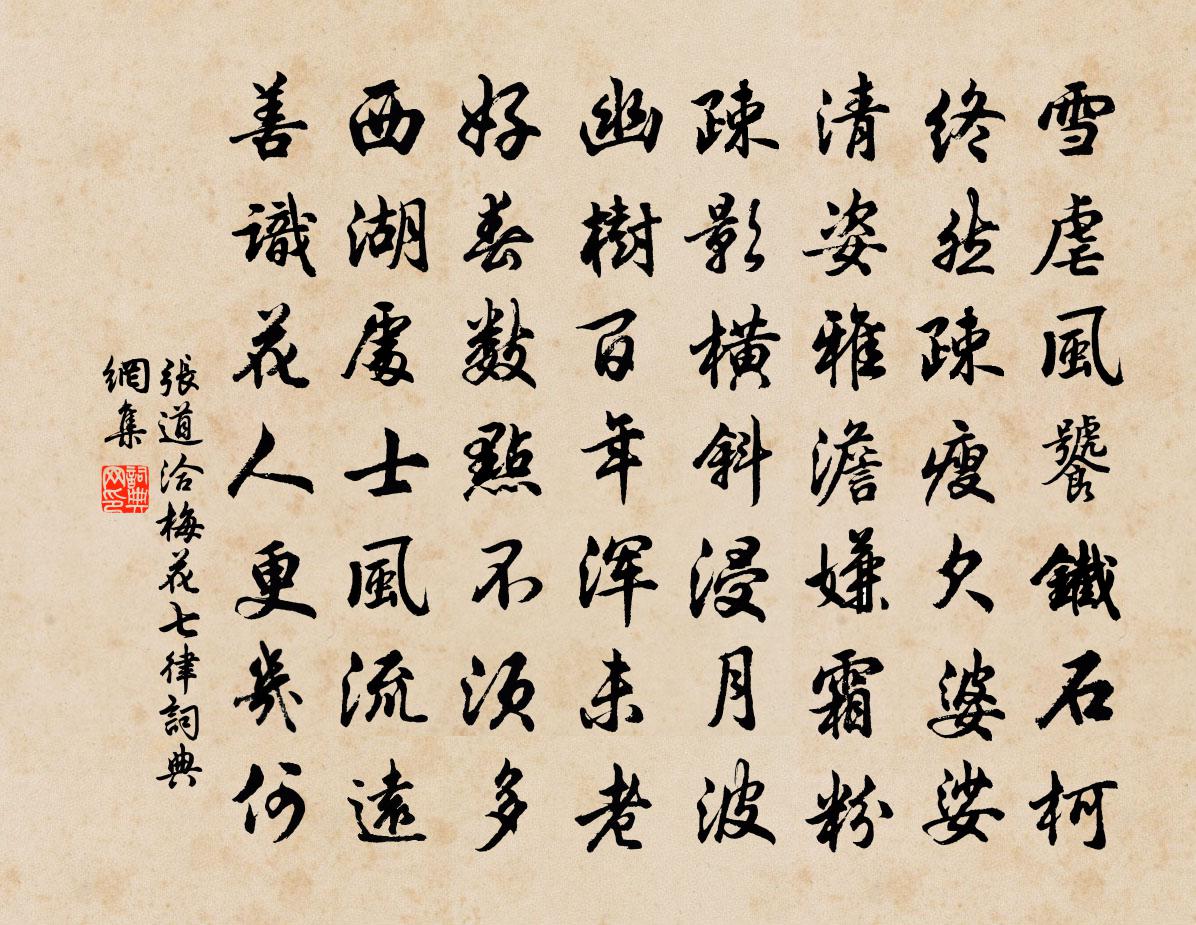 雪虐風饕鐵石柯
終然疎瘦欠婆娑
清姿雅澹嫌霜粉
疎影橫斜浸月波
幽樹百年渾未老
好春數點不須多
西湖處士風流遠
善識花人更幾何
張道洽梅花七律詞典
網集
詞典網印